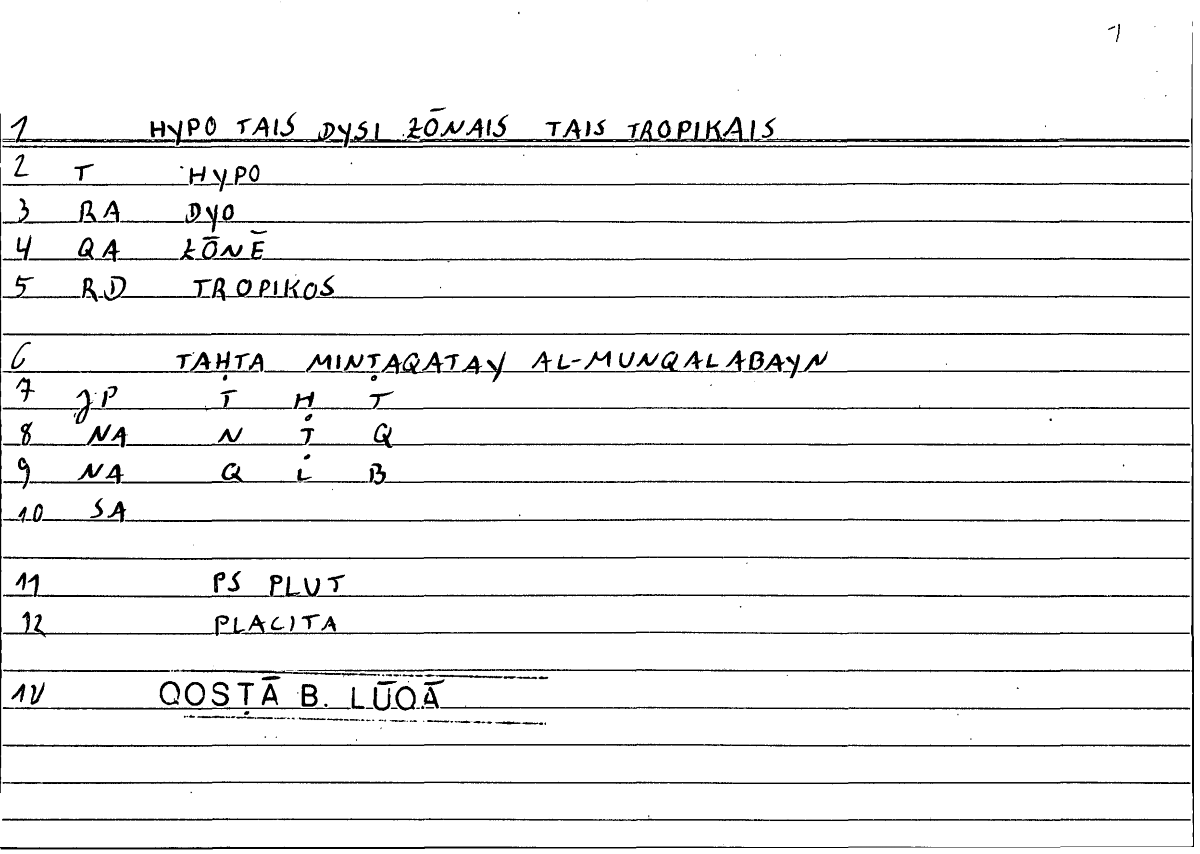 1
1 HYPO TAIS DYSI ZŌNAIS TAIS TROPIKAIS
2 T HYPO
3 RA DYO
4 QA ZŌNĒ
5 RD TROPIKOS
6 TAḤTA MINṬAQATAY AL-MUNQALABAYN
7 JP T Ḥ T
8 NA N Ṭ Q
9 NA Q L B
10 SA
11 PS PLUT
12 PLACITA
14 QOSṬĀ B. LŪQĀ